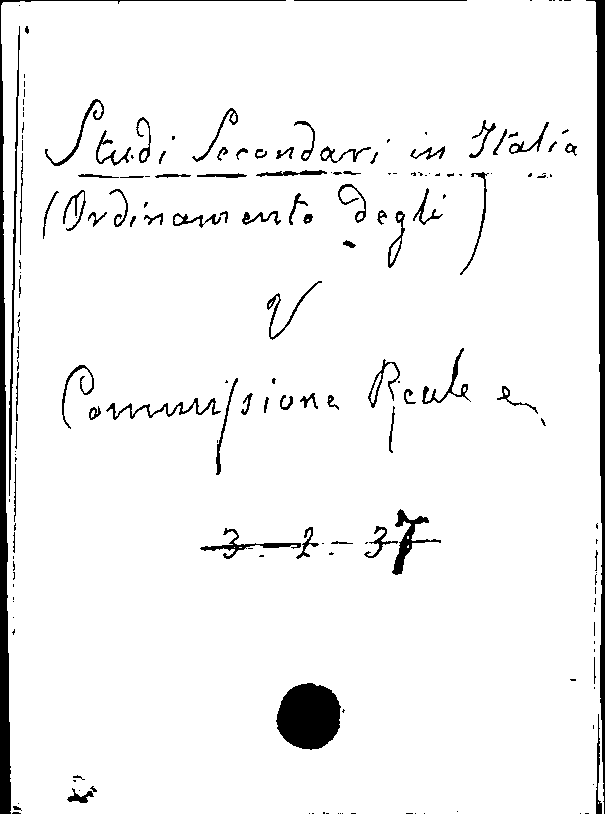 Studi Secondari in Italia
(Ordinamento degli)
V
Commissione Reale e
3-2-37